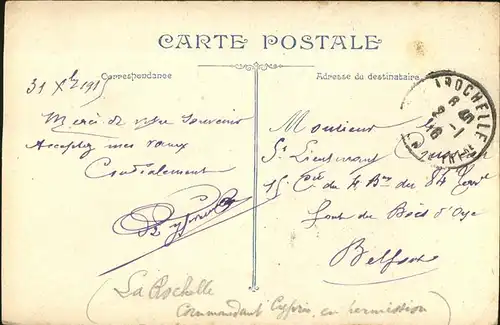 CARTE POSTALE
Correspondance
Adresse du destinataire
31 Xbre 1915
Merci de votre souvenir
Acceptez mes vœux
Cordialement
Monsieur
St Lieutenant
15 Cie du 4 Bon du 84 Terr
fort du Bois d'Oye
Belfort
ROCHELLE
6 45
2 -1
16
(La Rochelle
Commandant Cypris, en permission)